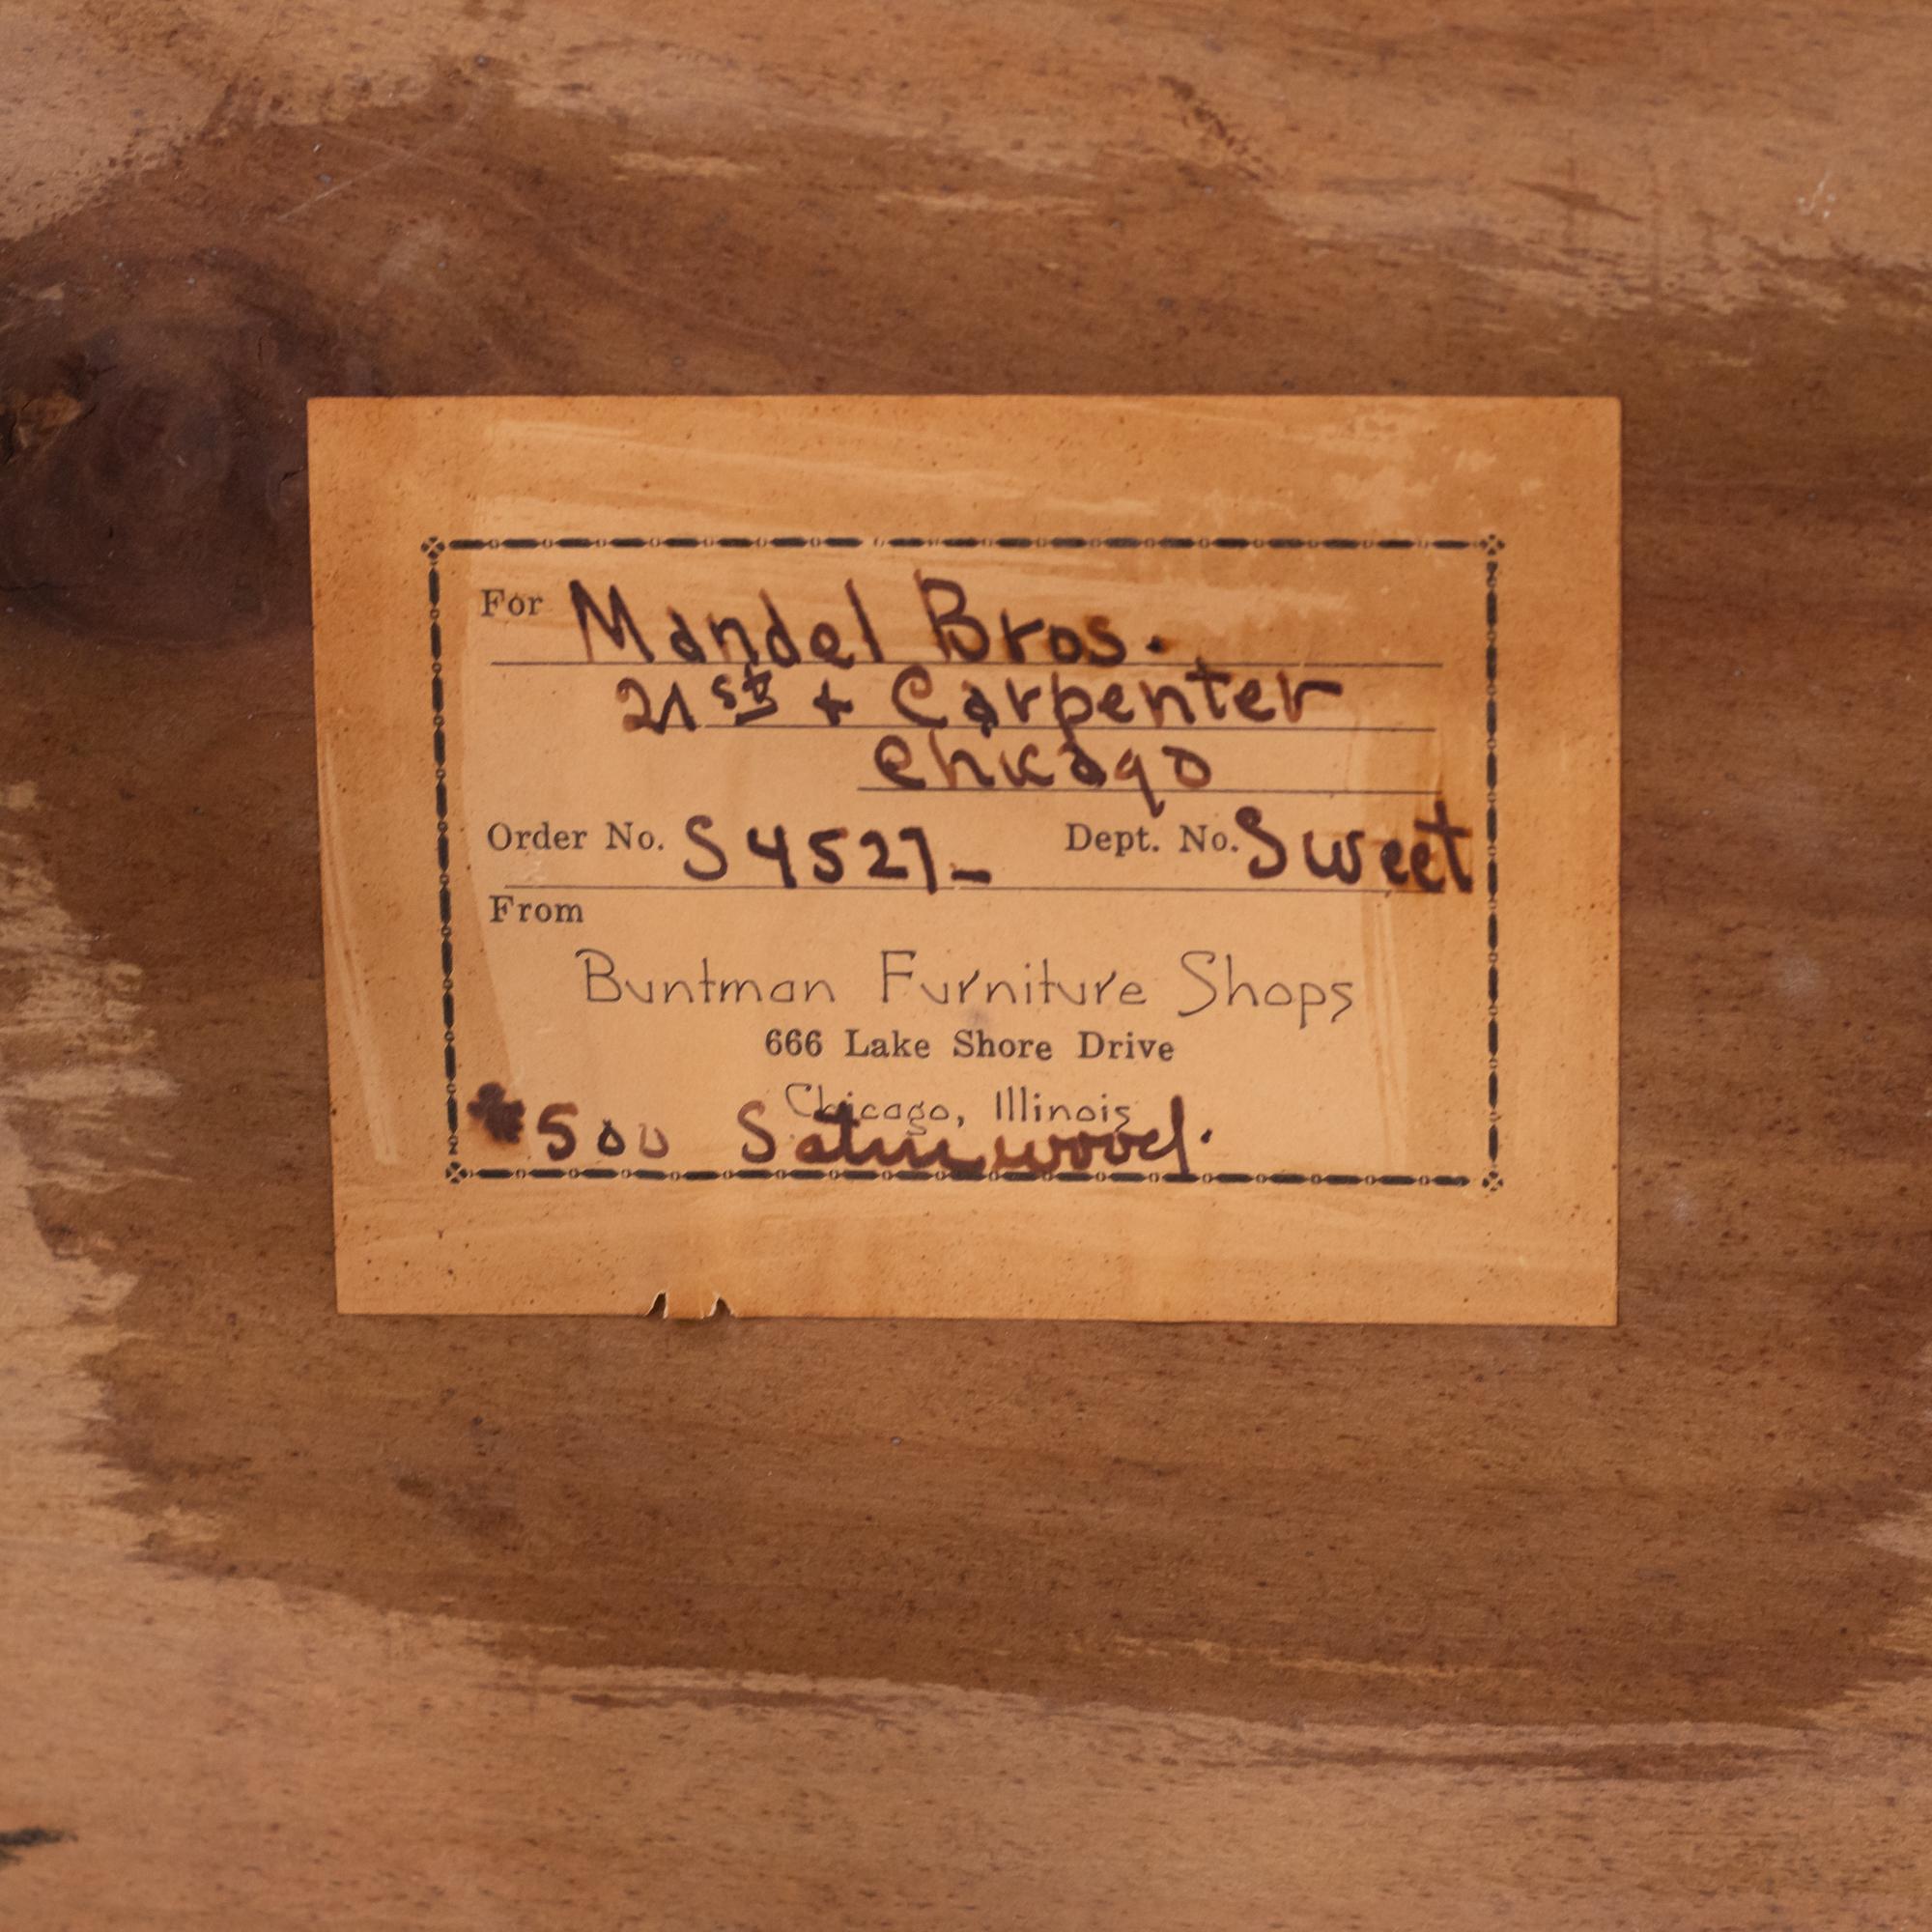 For Mandel Bros.
21st + Carpenter
Chicago
Order No. S4527- Dept. No. Sweet
From
Buntman Furniture Shops
666 Lake Shore Drive
Chicago, Illinois
#500 Satinwood.